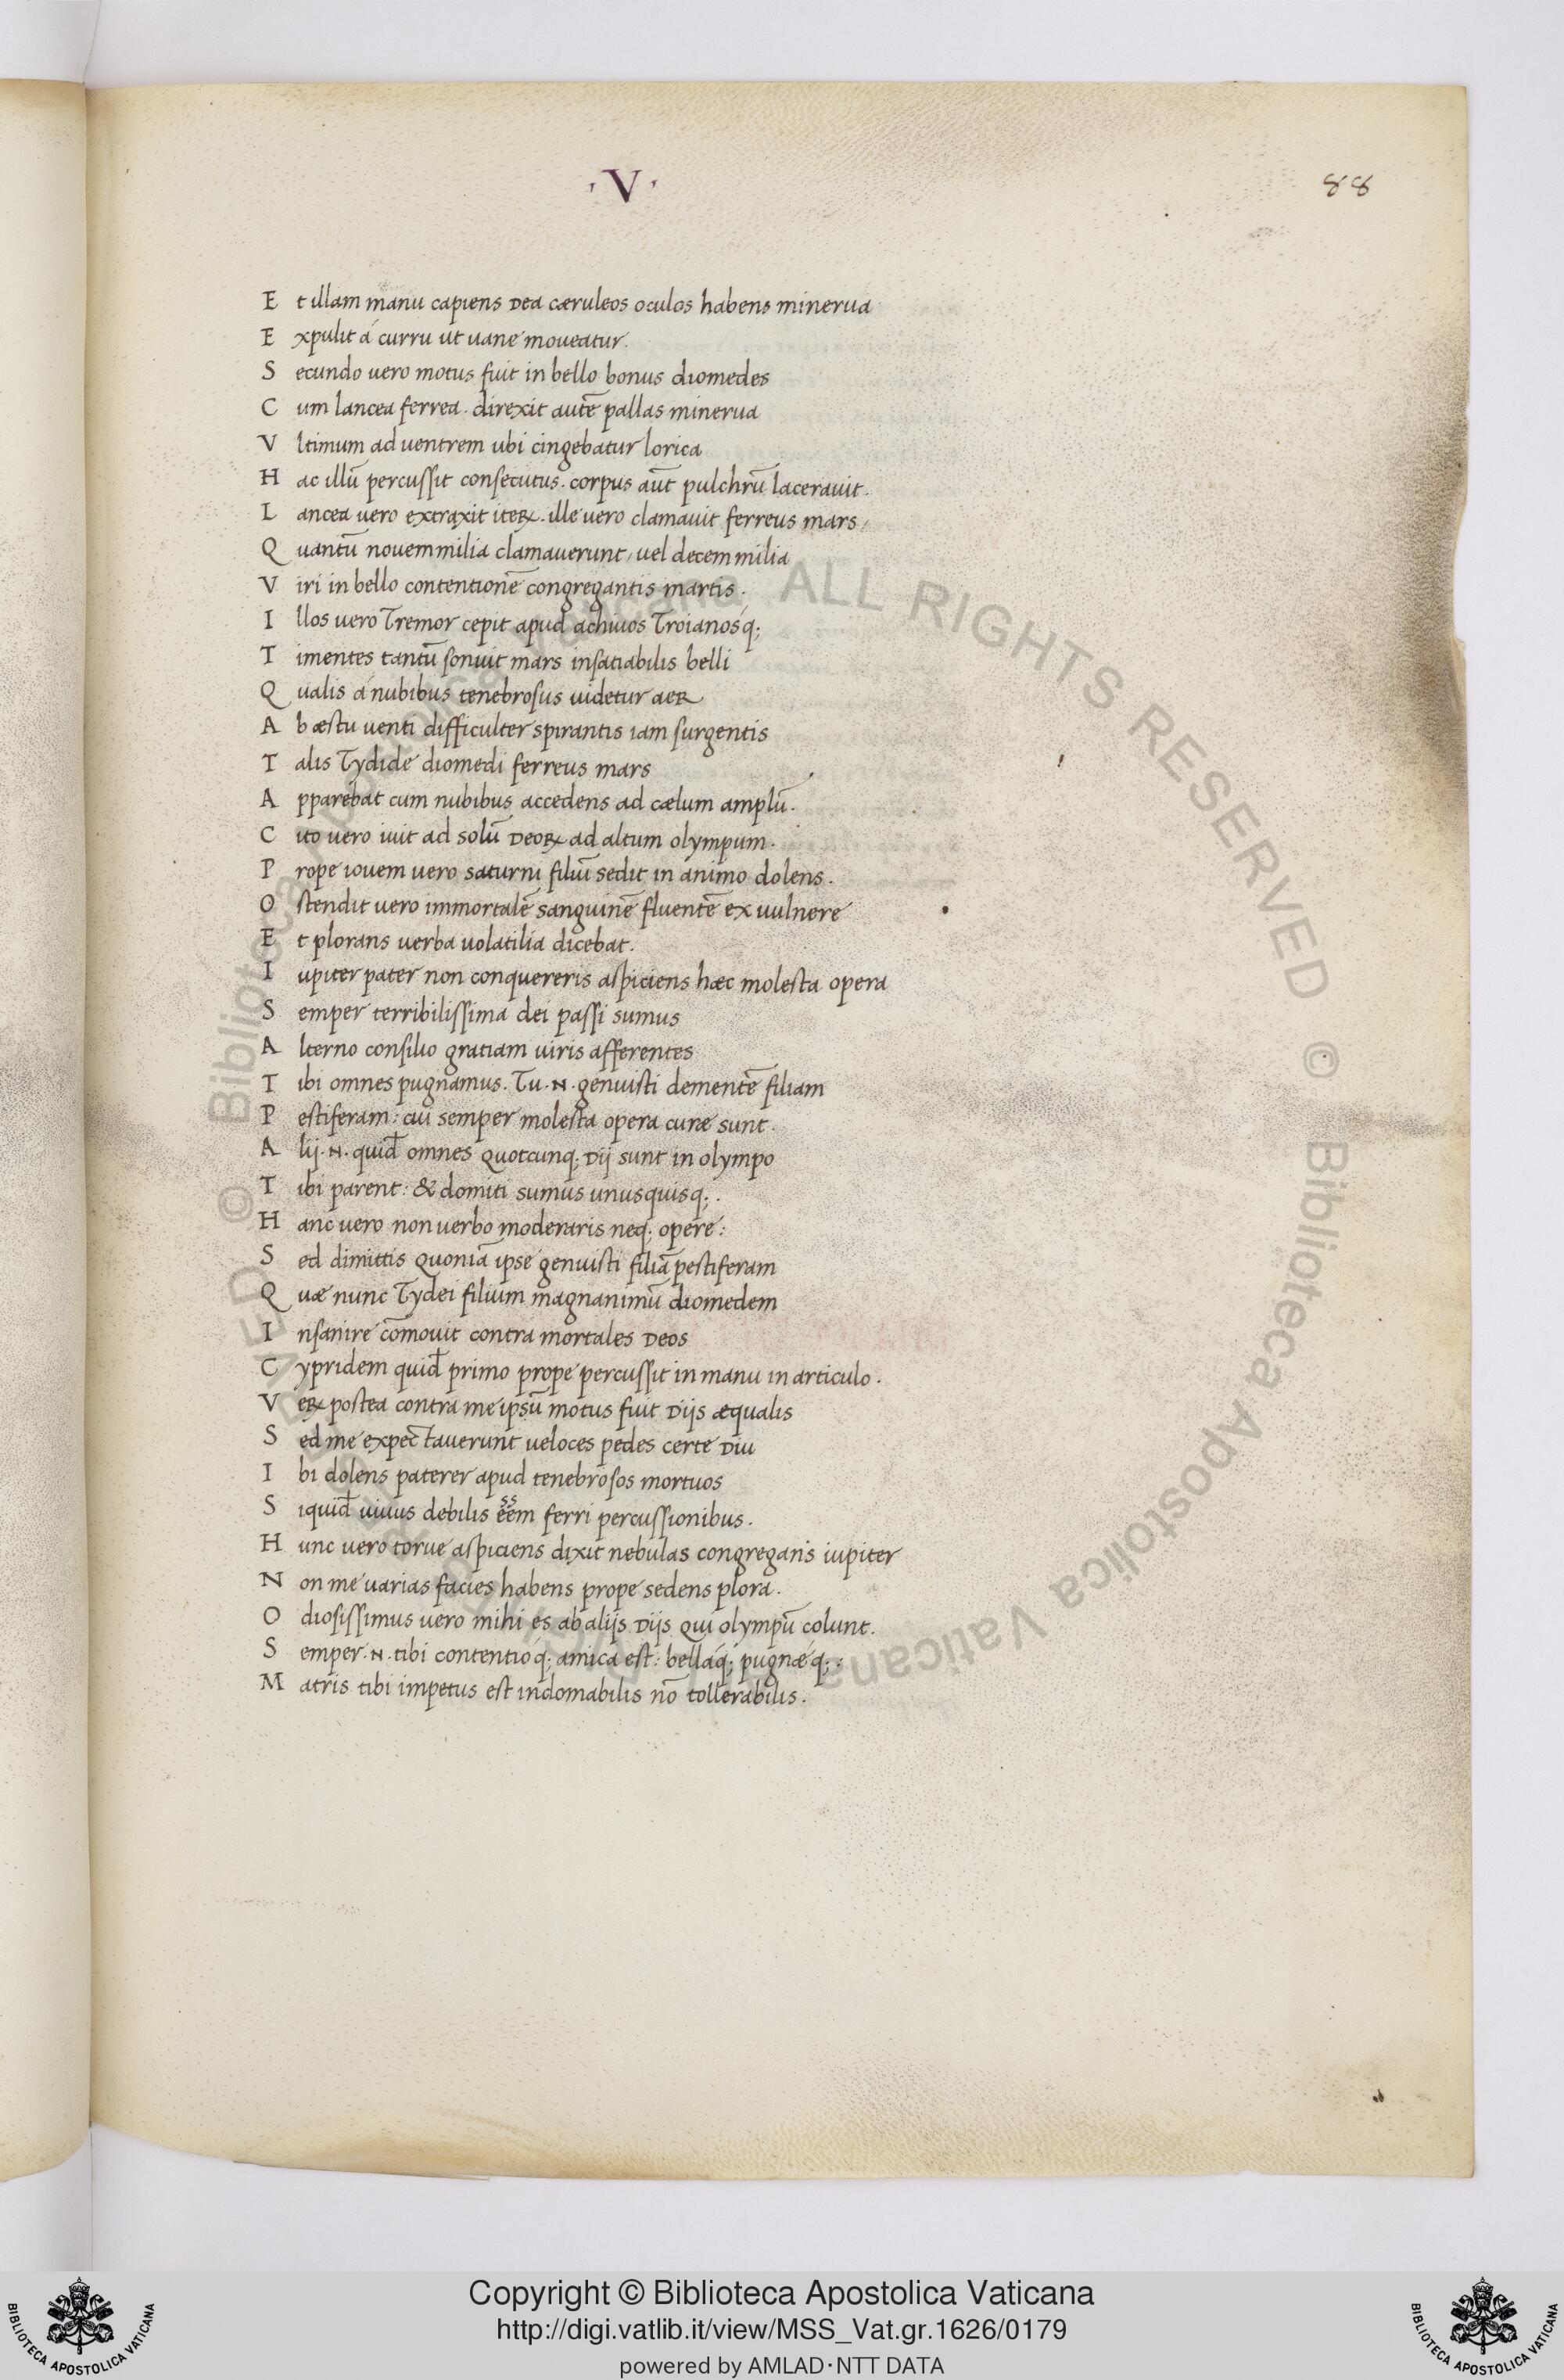 ·V·
88
Et illam manu capiens Dea cæruleos oculos habens minerua
Expulit á curru ut uane moueatur.
Secundo uero motus fuit in bello bonus diomedes
Cum lancea ferrea. direxit autē pallas minerua
Vltimum ad uentrem ubi cingebatur lorica
Hac illū percussit consecutus. corpus aūt pulchrū lacerauit.
Lancea uero extraxit iteꝝ. ille uero clamauit ferreus mars,
Quantū nouem milia clamauerunt, uel decem milia
Viri in bello contentionē congregantis martis.
Illos uero Tremor cepit apud achiuos Troianosq́;
Timentes tantū sonuit mars insatiabilis belli
Qualis á nubibus tenebrosus uidetur aeR
Ab æstu uenti difficulter spirantis iam surgentis
Talis Tydide diomedi ferreus mars
Apparebat cum nubibus accedens ad cælum amplū.
Cito uero iuit ad solū Deoꝝ ad altum olympum.
Prope iouem uero saturni filiū sedit in animo dolens.
Ostendit uero immortalē sanguinē fluentē ex uulnere
Et plorans uerba uolatilia dicebat.
Iupiter pater non conquereris aspiciens hæc molesta opera
Semper terribilissima dei passi sumus
Alterno consilio gratiam uiris afferentes
Tibi omnes pugnamus. Tu .N. genuisti dementē filiam
Pestiferam: cui semper molesta opera curæ sunt.
Alij .N. quid̄ omnes quotcunq; Dij sunt in olympo
Tibi parent: & domiti sumus unusquisq;.
Hanc uero non uerbo moderaris neq; opere:
Sed dimittis quoniā ipse genuisti filiā pestiferam
Quæ nunc Tydei filium magnanimū diomedem
Insanire cōmouit contra mortales Deos
Cypridem quid̄ primo prope percussit in manu in articulo.
Veꝝ postea contra me ipsū motus fuit Dijs æqualis
Sed me expectauerunt ueloces pedes certe Diu
Ibi dolens paterer apud tenebrosos mortuos
Siquid̄ uiuus debilis eēm ss ferri percussionibus.
Hunc uero torue aspiciens dixit nebulas congregans iupiter
Non me uarias facies habens prope sedens plora.
Odiosissimus uero mihi es ab alijs Dijs qui olympū colunt.
Semper .N. tibi contentioq́; amica est: bellaq́; pugnæq́;:
Matris tibi impetus est indomabilis nō tollerabilis.
© Biblioteca Apostolica Vaticana ALL RIGHTS RESERVED © Biblioteca Apostolica Vaticana
Copyright © Biblioteca Apostolica Vaticana
http://digi.vatlib.it/view/MSS_Vat.gr.1626/0179
powered by AMLAD·NTT DATA
BIBLIOTECA APOSTOLICA VATICANA
BIBLIOTECA APOSTOLICA VATICANA